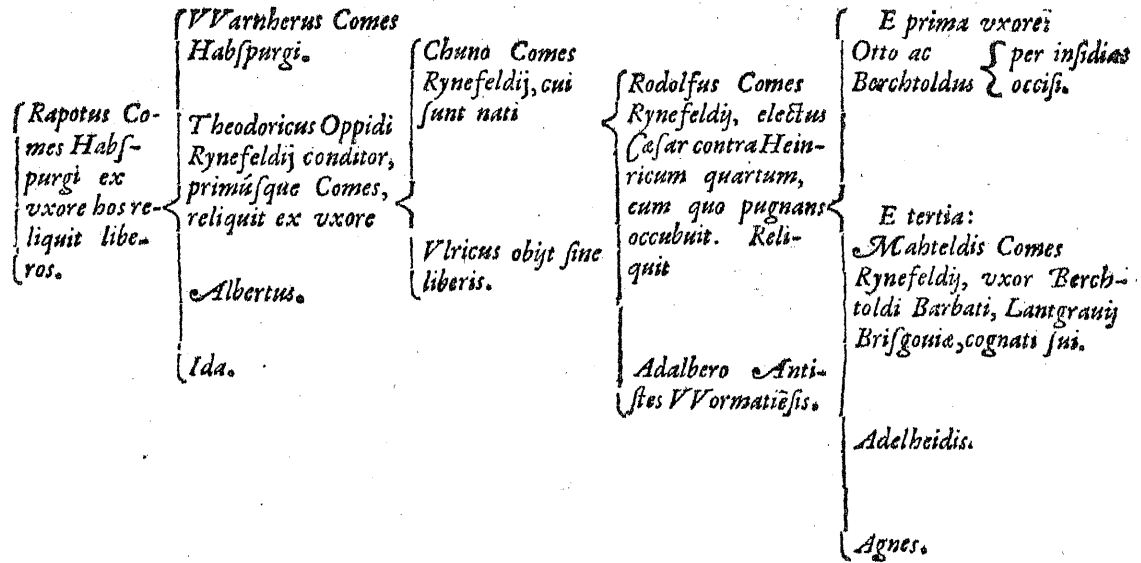 Rapotus Co-
mes Habſ-
purgi ex
vxore hos re-
liquit libe-
ros.
VVarnherus Comes
Habſpurgi.
Theodoricus Oppidi
Rynefeldij conditor,
primúſque Comes,
reliquit ex vxore
Albertus.
Ida.
Chuno Comes
Rynefeldij, cui
ſunt nati
Vlricus obijt ſine
liberis.
Rodolfus Comes
Rynefeldij, electus
Cæſar contra Hein-
ricum quartum,
cum quo pugnans
occubuit. Reli-
quit
Adalbero Anti-
ſtes VVormatiēſis.
E prima vxore:
Otto ac
Berchtoldus
per inſidias
occiſi.
E tertia:
Mahteldis Comes
Rynefeldij, vxor Berch-
toldi Barbati, Lantgrauij
Briſgouiæ, cognati ſui.
Adelheidis.
Agnes.